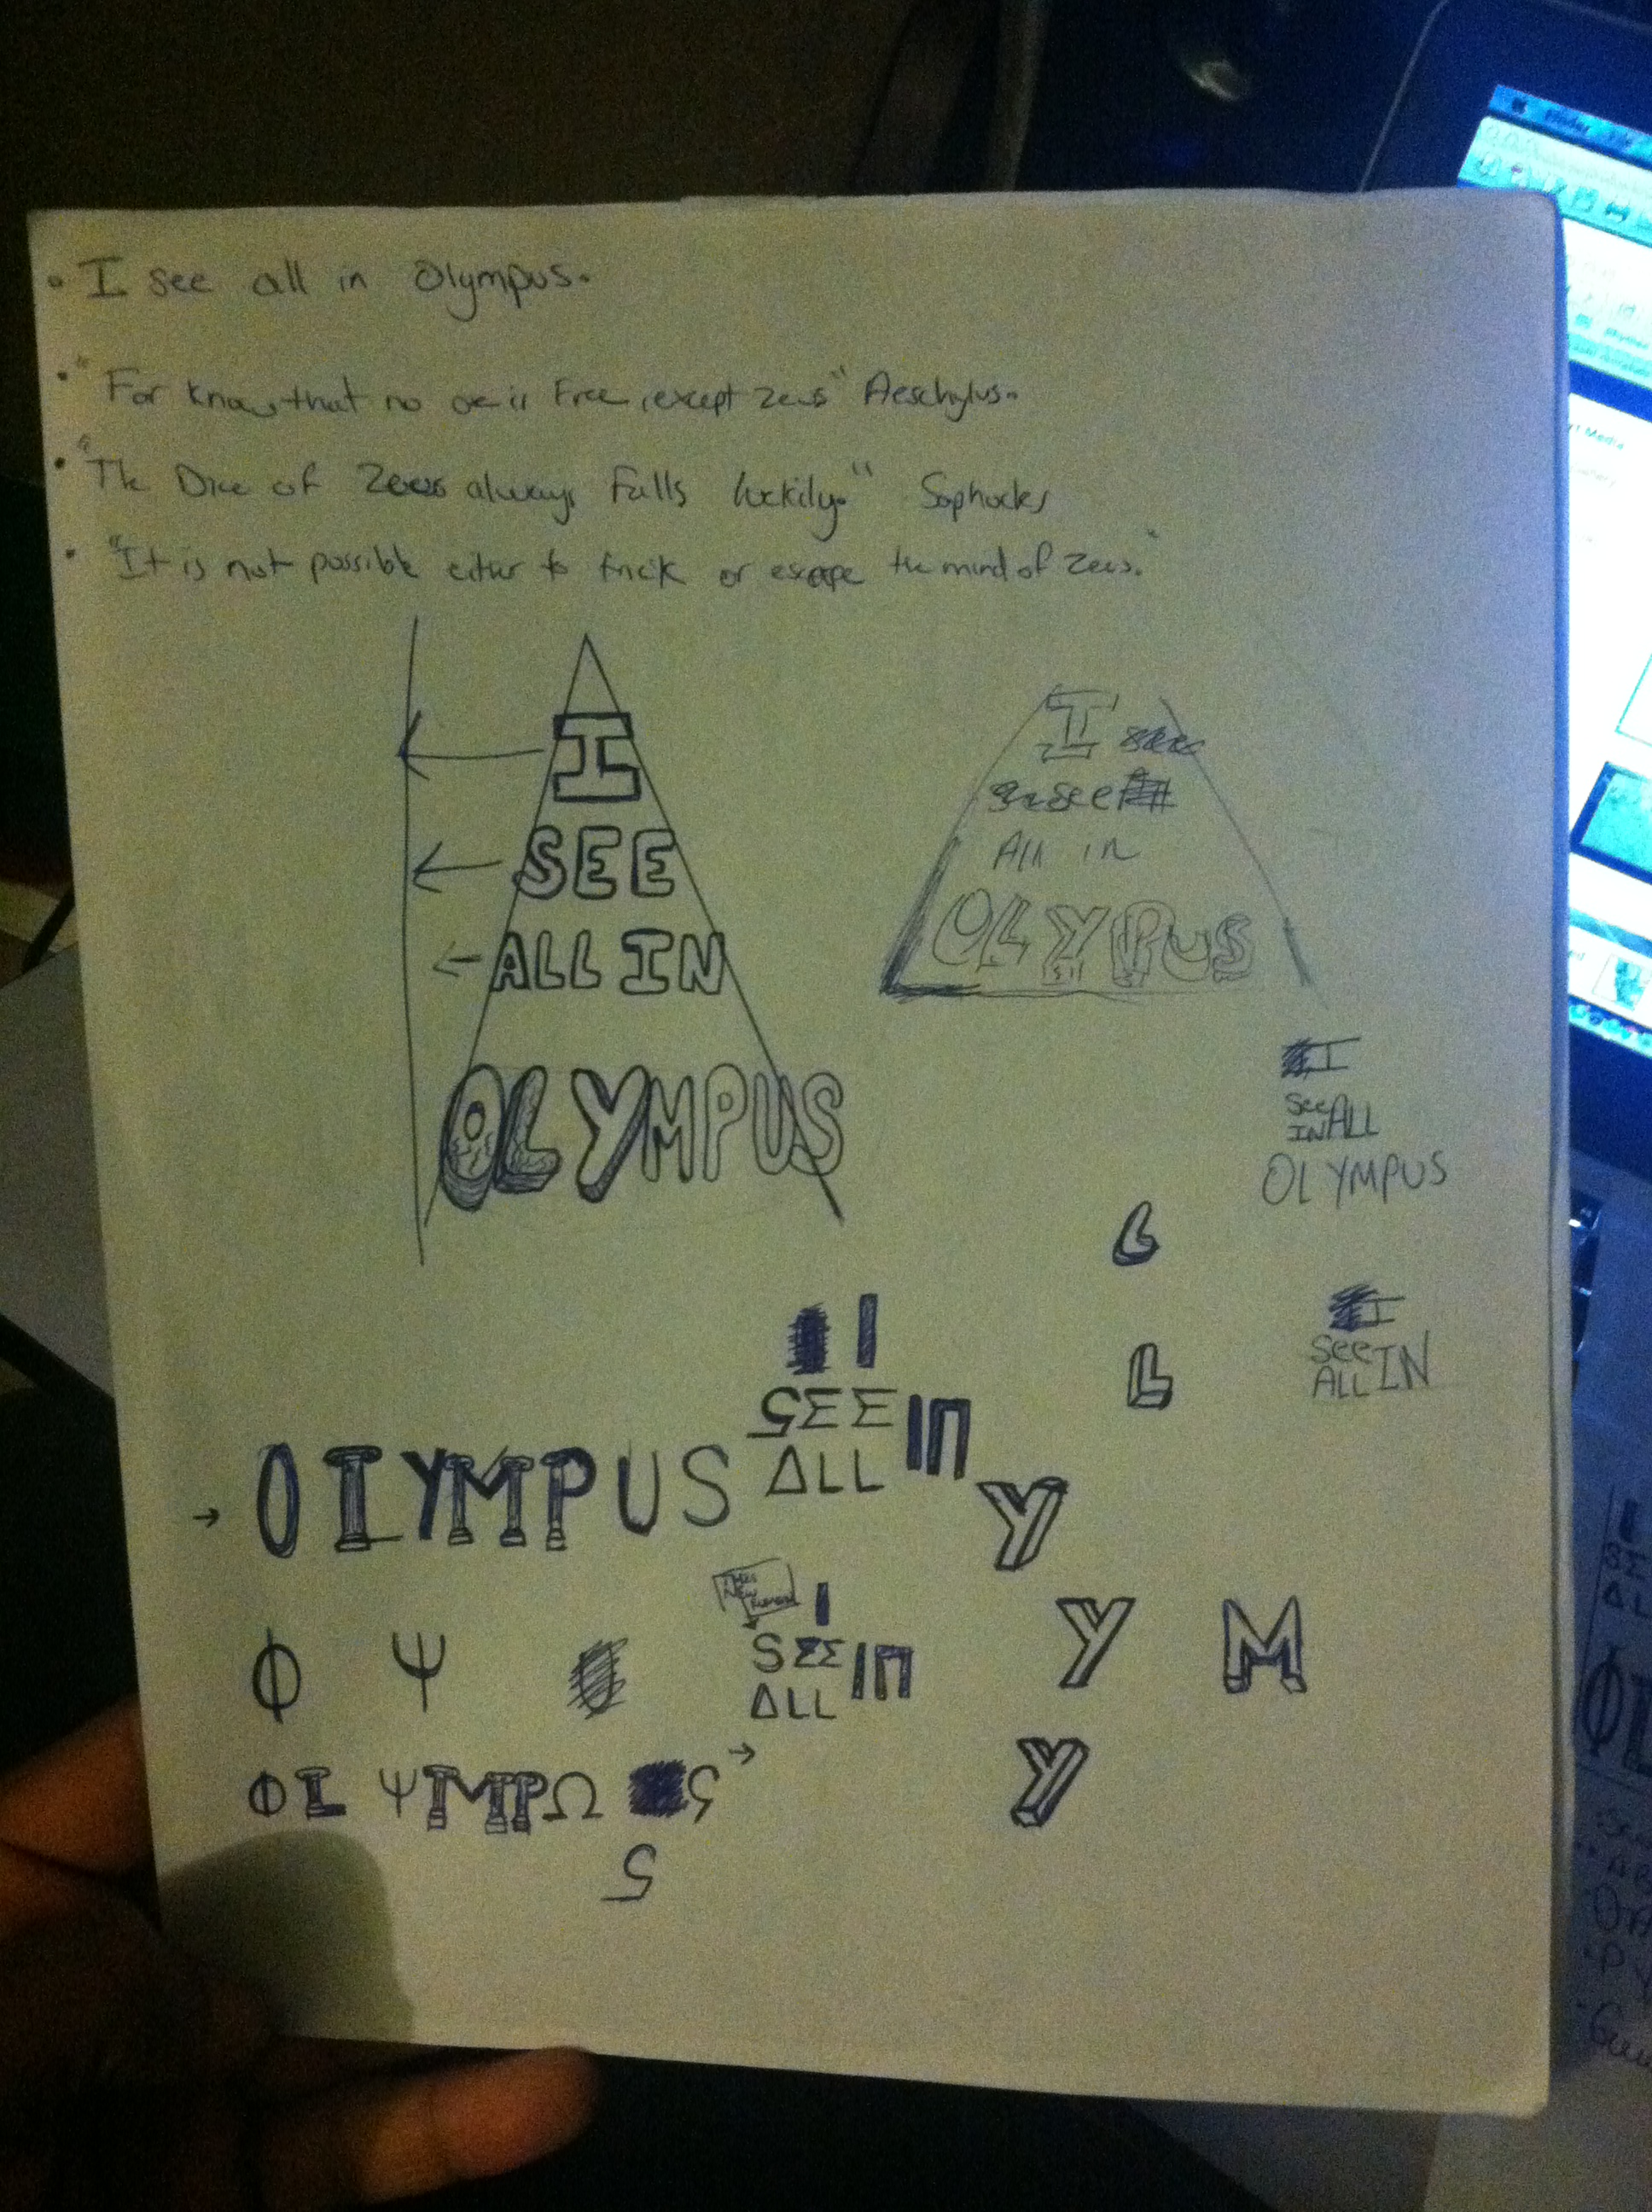 • I see all in Olympus.
• "For know that no one is Free, except Zeus" Aeschylus.
• "The Dice of Zeus always Falls luckily." Sophocles
• "It is not possible either to trick or escape the mind of Zeus."
I
SEE
ALL IN
OLYMPUS
I
see
All in
OLYPUS
I
See ALL
IN
OLYMPUS
L
I
See IN
ALL
L
I
ϚΣΣ IП
ΔLL
→ OLYMPUS
Y
I
SΣΣ IП
ΔLL
Φ Ψ
Y M
ΦL ΨMPΩ ς →
Y
Ϛ